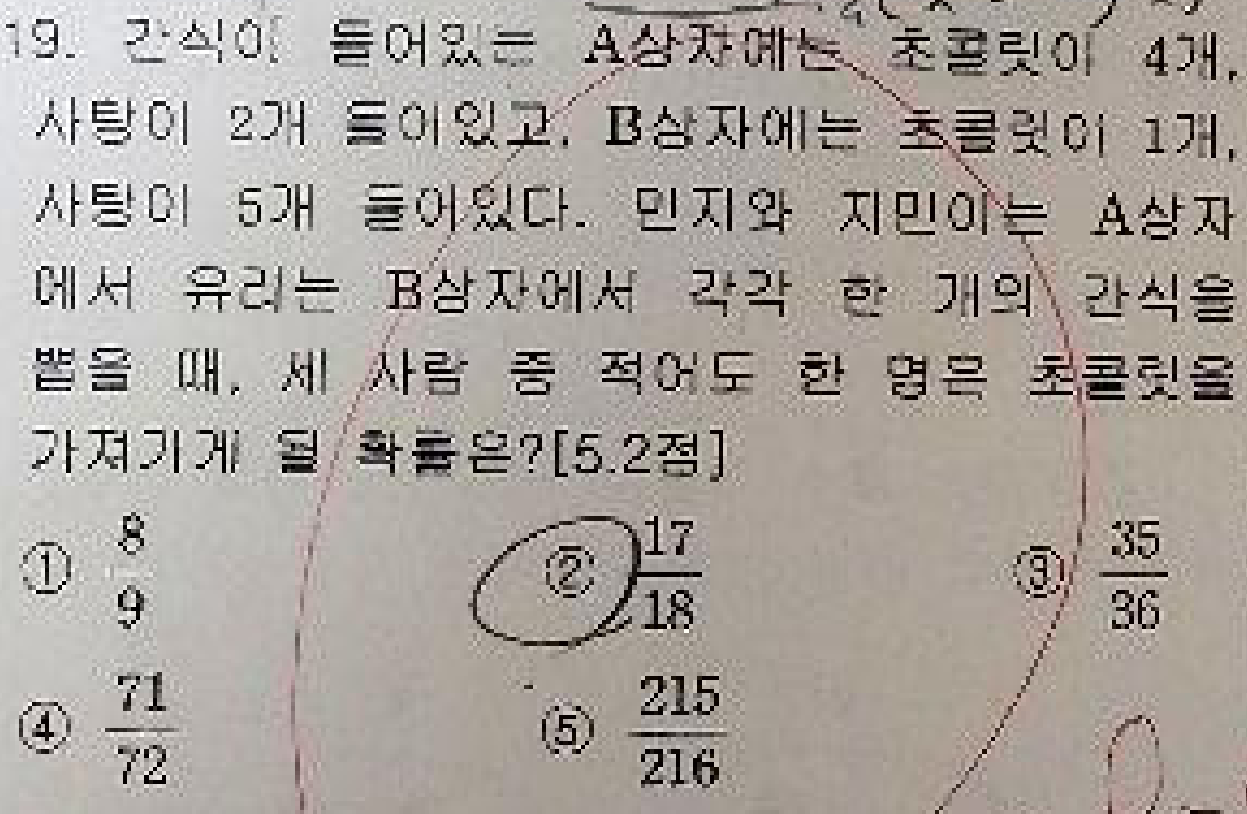 19. 간식이 들어있는 A상자에는 초콜릿이 4개,
사탕이 2개 들어있고, B상자에는 초콜릿이 1개,
사탕이 5개 들어있다. 민지와 지민이는 A상자
에서 유리는 B상자에서 각각 한 개의 간식을
뽑을 때, 세 사람 중 적어도 한 명은 초콜릿을
가져가게 될 확률은?[5.2점]
① 8/9 ② 17/18 ③ 35/36
④ 71/72 ⑤ 215/216